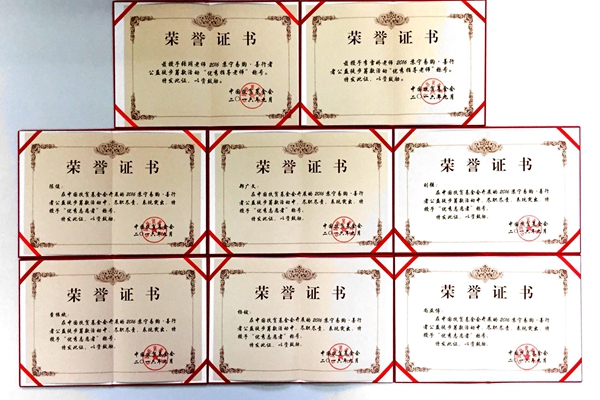 荣誉证书
兹授予 老师2016苏宁易购·善行者
公益徒步募款活动“优秀指导老师”称号。
特发此证,以资鼓励。
中国扶贫基金会
二〇一六年九月
荣誉证书
兹授予 老师2016苏宁易购·善行者
公益徒步募款活动“优秀指导老师”称号。
特发此证,以资鼓励。
中国扶贫基金会
二〇一六年九月
荣誉证书
在中国扶贫基金会开展的2016苏宁易购·善行
者公益徒步募款活动中,尽职尽责,表现突出,特
授予“优秀志愿者”称号。
特发此证,以资鼓励。
中国扶贫基金会
二〇一六年九月
荣誉证书
郭广天:
在中国扶贫基金会开展的2016苏宁易购·善行
者公益徒步募款活动中,尽职尽责,表现突出,特
授予“优秀志愿者”称号。
特发此证,以资鼓励。
中国扶贫基金会
二〇一六年九月
荣誉证书
刘颖:
在中国扶贫基金会开展的2016苏宁易购·善行
者公益徒步募款活动中,尽职尽责,表现突出,特
授予“优秀志愿者”称号。
特发此证,以资鼓励。
中国扶贫基金会
二〇一六年九月
荣誉证书
在中国扶贫基金会开展的2016苏宁易购·善行
者公益徒步募款活动中,尽职尽责,表现突出,特
授予“优秀志愿者”称号。
特发此证,以资鼓励。
中国扶贫基金会
二〇一六年九月
荣誉证书
在中国扶贫基金会开展的2016苏宁易购·善行
者公益徒步募款活动中,尽职尽责,表现突出,特
授予“优秀志愿者”称号。
特发此证,以资鼓励。
中国扶贫基金会
二〇一六年九月
荣誉证书
在中国扶贫基金会开展的2016苏宁易购·善行
者公益徒步募款活动中,尽职尽责,表现突出,特
授予“优秀志愿者”称号。
特发此证,以资鼓励。
中国扶贫基金会
二〇一六年九月